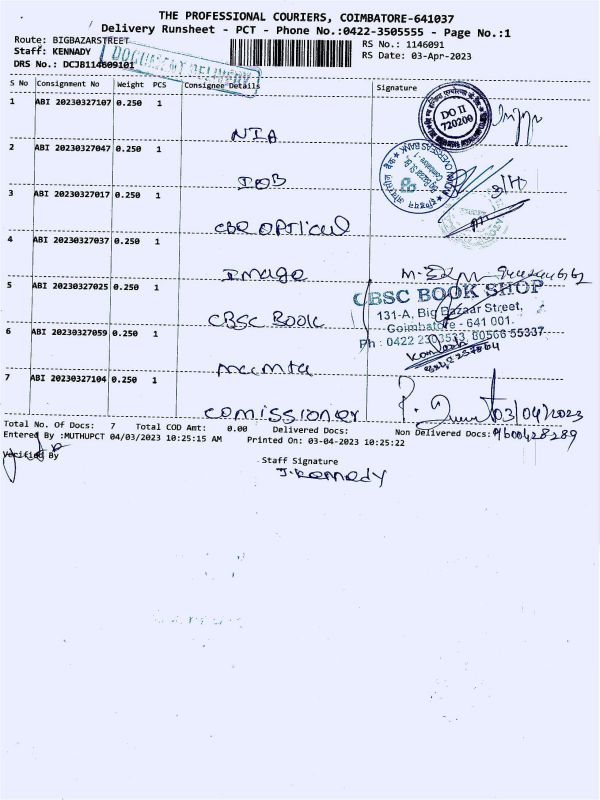 THE PROFESSIONAL COURIERS, COIMBATORE-641037
Delivery Runsheet - PCT - Phone No.:0422-3505555 - Page No.:1
Route: BIGBAZARSTREET
RS No.: 1146091
Staff: KENNADY
RS Date: 03-Apr-2023
DOCUMENT DELIVERY
DRS No.: DCJB114609101
S No Consignment No Weight PCS Consignee Details Signature
1 ABI 20230327107 0.250 1
NIA
DO II
720200
2 ABI 20230327047 0.250 1
IOB
INDIAN OVERSEAS BANK
3 ABI 20230327017 0.250 1
CBE OPTICAL
4 ABI 20230327037 0.250 1
Image
5 ABI 20230327025 0.250 1
CBSC BOOK
CBSC BOOK SHOP
131-A, Big Bazaar Street,
Coimbatore - 641 001.
Ph : 0422 2303533, 80566 55337
6 ABI 20230327059 0.250 1
mamta
7 ABI 20230327104 0.250 1
COMISSIONER
03/04/2023
9600428289
Total No. Of Docs: 7 Total COD Amt: 0.00 Delivered Docs: Non Delivered Docs:
Entered By :MUTHUPCT 04/03/2023 10:25:15 AM Printed On: 03-04-2023 10:25:22
Verified By
Staff Signature
J. Kennedy